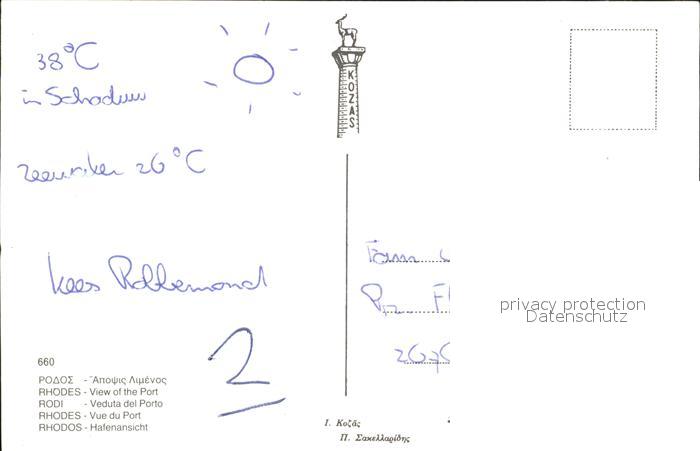 38°C
in Schaduw
Zeewater 26°C
Kees Robbemond
2
660
ΡΟΔΟΣ - Ἄποψις Λιμένος
RHODES - View of the Port
RODI - Veduta del Porto
RHODES - Vue du Port
RHODOS - Hafenansicht
KOZAS
Ι. Κοζᾶς
Π. Σακελλαρίδης
Fam
privacy protection
Datenschutz